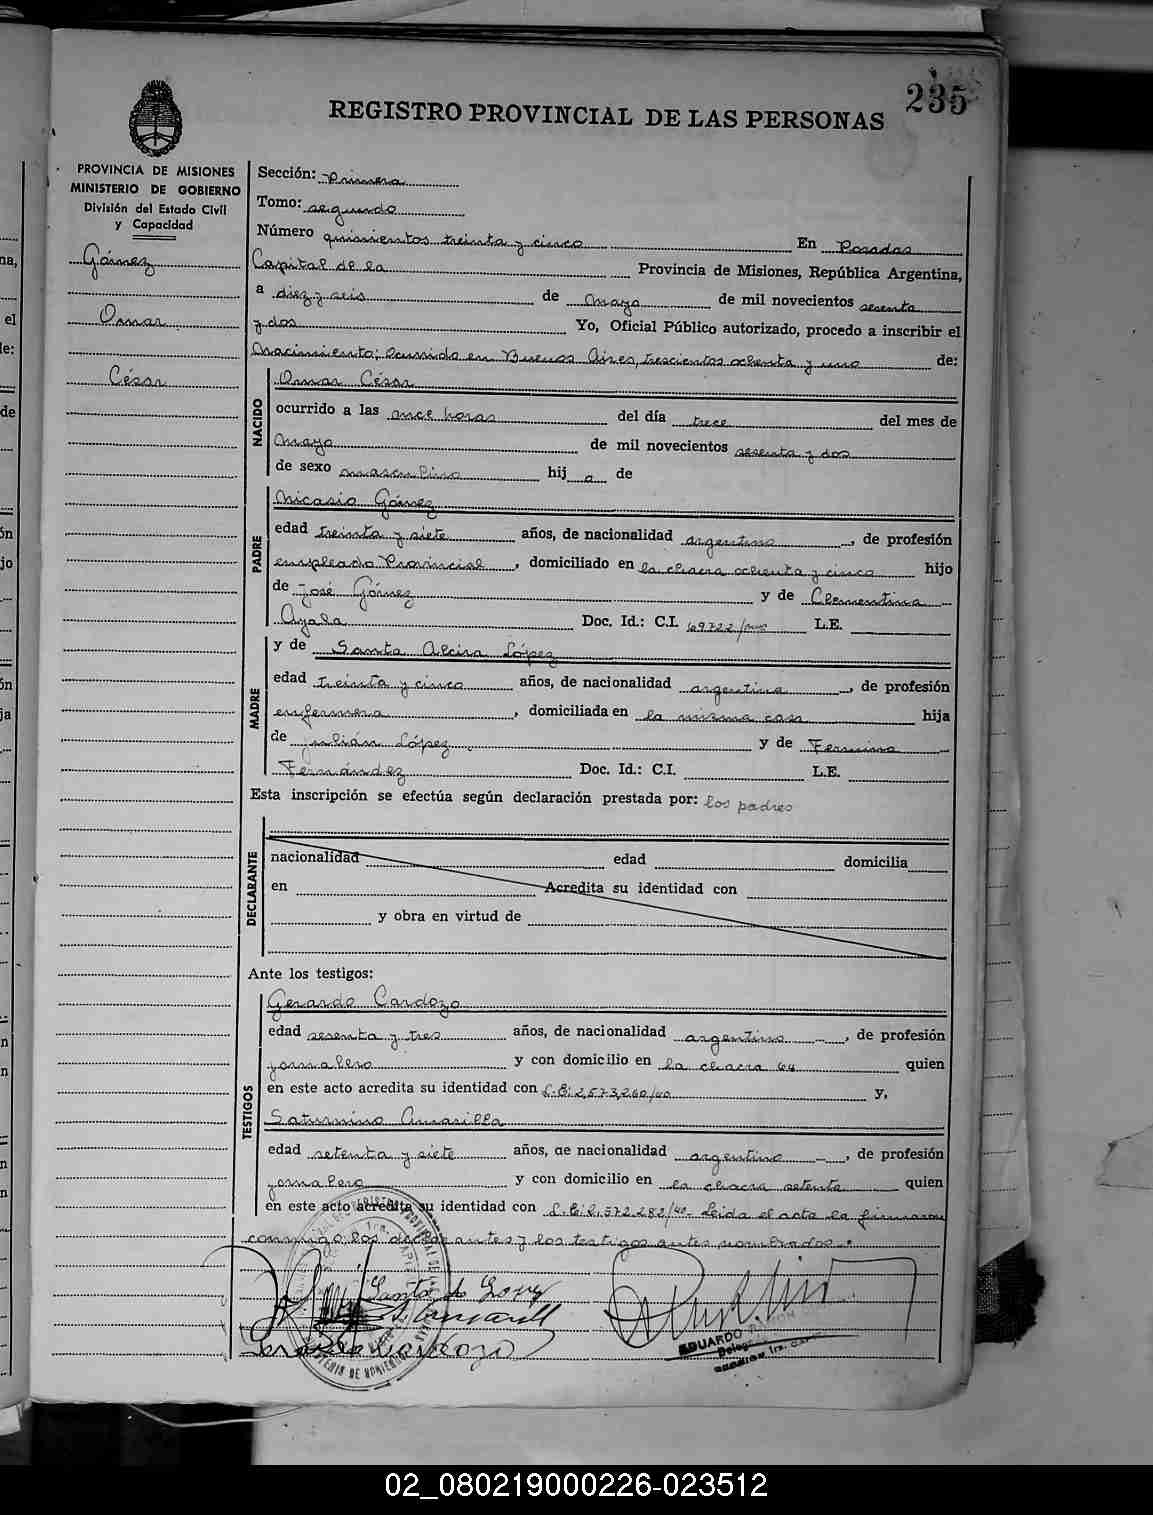 235
REGISTRO PROVINCIAL DE LAS PERSONAS
PROVINCIA DE MISIONES
MINISTERIO DE GOBIERNO
División del Estado Civil
y Capacidad
Gómez
Omar
César
Sección: Primera
Tomo: segundo
Número quinientos treinta y cinco En Posadas
Capital de la Provincia de Misiones, República Argentina,
a diez y seis de mayo de mil novecientos sesenta
y dos Yo, Oficial Público autorizado, procedo a inscribir el
Nacimiento; ocurrido en Buenos Aires, trescientos ochenta y uno de:
NACIDO
Omar César
ocurrido a las once horas del día trece del mes de
mayo de mil novecientos sesenta y dos
de sexo masculino hij o de
PADRE
Nicasio Gómez
edad treinta y siete años, de nacionalidad argentino, de profesión
empleado Provincial, domiciliado en la chacra ochenta y cinco hijo
de José Gómez y de Clementina
Ayala Doc. Id.: C.I. 69.722 L.E.
MADRE
y de Santa Alcira López
edad treinta y cinco años, de nacionalidad argentina, de profesión
enfermera, domiciliada en la misma casa hija
de Julián López y de Fermina
Fernández Doc. Id.: C.I. L.E.
Esta inscripción se efectúa según declaración prestada por: los padres
DECLARANTE
nacionalidad edad domicilia
en Acredita su identidad con
y obra en virtud de
Ante los testigos:
TESTIGOS
Gerardo Cardozo
edad sesenta y tres años, de nacionalidad argentino, de profesión
jornalero y con domicilio en la chacra 64 quien
en este acto acredita su identidad con L.E: 2,573,260/40 y,
Saturnino Amarilla
edad setenta y siete años, de nacionalidad argentino, de profesión
jornalero y con domicilio en la chacra setenta quien
en este acto acredita su identidad con L.E: 2,572.282/40- Leida el acta la firmaron
conmigo los declarantes y los testigos antes nombrados.
EDUARDO
02_080219000226-023512